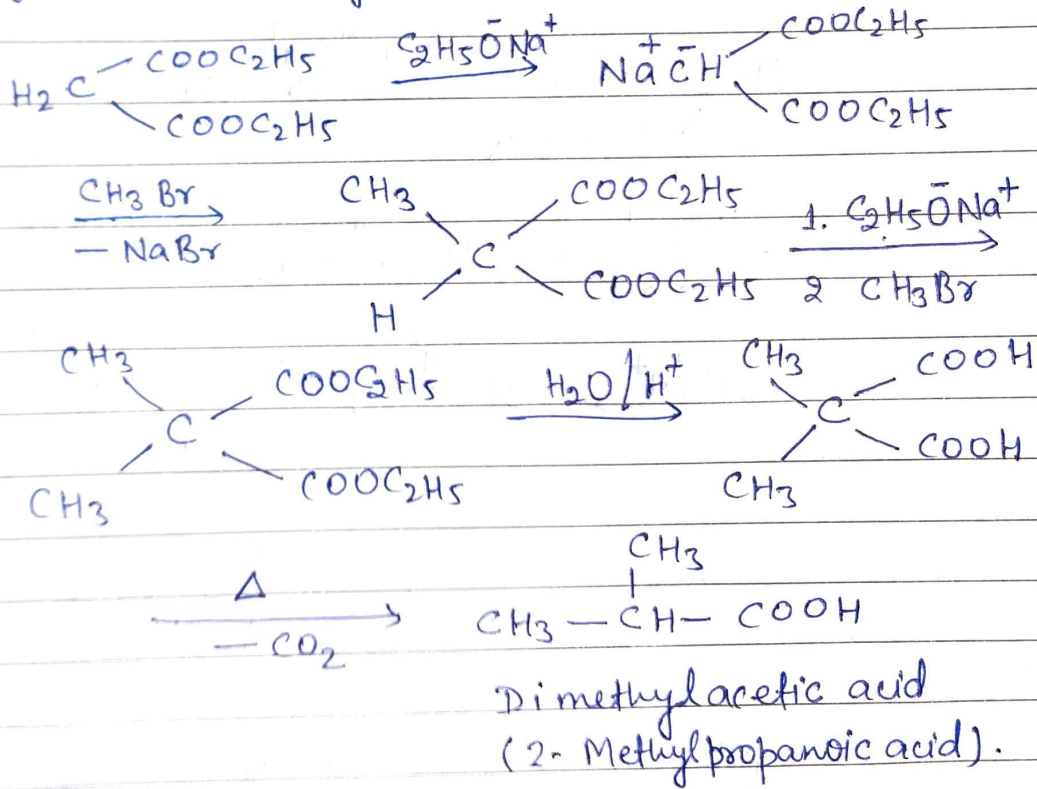 H₂C COOC₂H₅ COOC₂H₅ C₂H₅ŌNa⁺ Na⁺ C̄H COOC₂H₅ COOC₂H₅
CH₃Br − NaBr CH₃ H C COOC₂H₅ COOC₂H₅ 1. C₂H₅ŌNa⁺ 2 CH₃Br
CH₃ CH₃ C COOC₂H₅ COOC₂H₅ H₂O/H⁺ CH₃ CH₃ C COOH COOH
Δ − CO₂ CH₃
CH₃ — CH — COOH
Dimethylacetic acid
(2- Methylpropanoic acid).